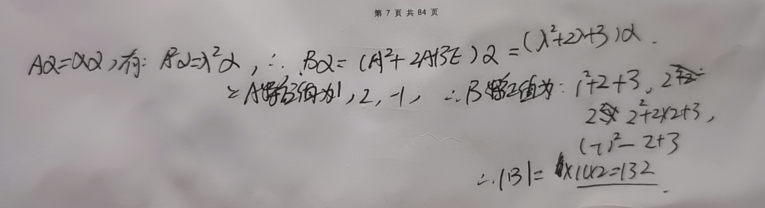 第 7 页 共 84 页
Aα=αα,有: A²α=λ²α, ∴ Bα=(A²+2A+3E)α=(λ²+2λ+3)α.
∵A特征值为1,2,-1, ∴B特征值为: 1²+2+3,
2²+2×2+3,
(-1)²-2+3
∴|B|= 6×11×2=132